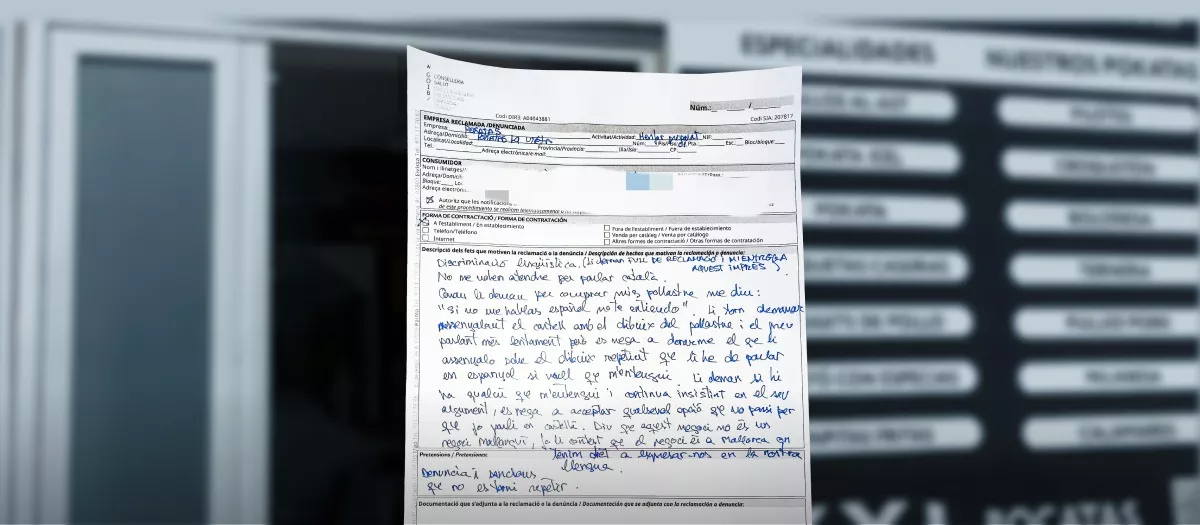 ESPECIALIDADES
NUESTROS POKATAS
POKATA XXL
POKATA
PATITAS FRITAS
PILOTES
CROQUETON
BOLOÑESA
TERNERA
PULLED PORK
MILANESA
CALAMARES
G
O
I
B
CONSELLERIA
SALUT
Núm.: /
Codi DIR3: A04043881
Codi SIA: 207817
EMPRESA RECLAMADA /DENUNCIADA
Empresa: POKATAS Activitat/Actividad: NIF:
Adreça/Domicilio: Núm.: Pis/Piso: Pta.: Esc.: Bloc/bloque:
Localitat/Localidad: Província/Provincia: Illa/Isla: CP:
Tel. Adreça electrònica/e-mail:
CONSUMIDOR
Nom i llinatges/
Adreça/Domicili
Bloque: Lo
Adreça electròn
Autoritz que les notificacio
de este procedimiento se realicen
FORMA DE CONTRACTACIÓ / FORMA DE CONTRATACIÓN
A l'establiment / En establecimiento
Telèfon/Teléfono
Internet
Fora de l'establiment / Fuera de establecimiento
Venda per catàleg / Venta por catálogo
Altres formes de contractació / Otras formas de contratación
Descripció dels fets que motiven la reclamació o la denúncia / Descripción de hechos que motivan la reclamación o denuncia:
Discriminació lingüística. (Li deman FULL DE RECLAMACIÓ I M'ENTREGA
AQUEST IMPRÈS)
No me volen atendre per parlar català.
Quan li deman per comprar mig pollastre me diu:
"Si no me hablas español no te entiendo". Li torn demanar
assenyalant el cartell amb el dibuix del pollastre i el preu
parlant més lentament però es nega a donarme el que li
assenyalo sobre el dibuix repetint que li he de parlar
en espanyol si vull que m'entengui. Li deman si hi
ha qualcú que m'entengui i continua insistint en el seu
argument, es nega a acceptar qualsevol opció que no passi per
que jo parli en castellà. Diu que aquest negoci no és un
negoci mallorquí, jo li contest que el negoci és a Mallorca on
tenim dret a expresar-nos en la nostra
llengua.
Pretensions / Pretensiones:
Denuncia i sancions
que no es torni repetir.
Documentació que s'adjunta a la reclamació o la denúncia / Documentación que se adjunta con la reclamación o denuncia:
POCATAS